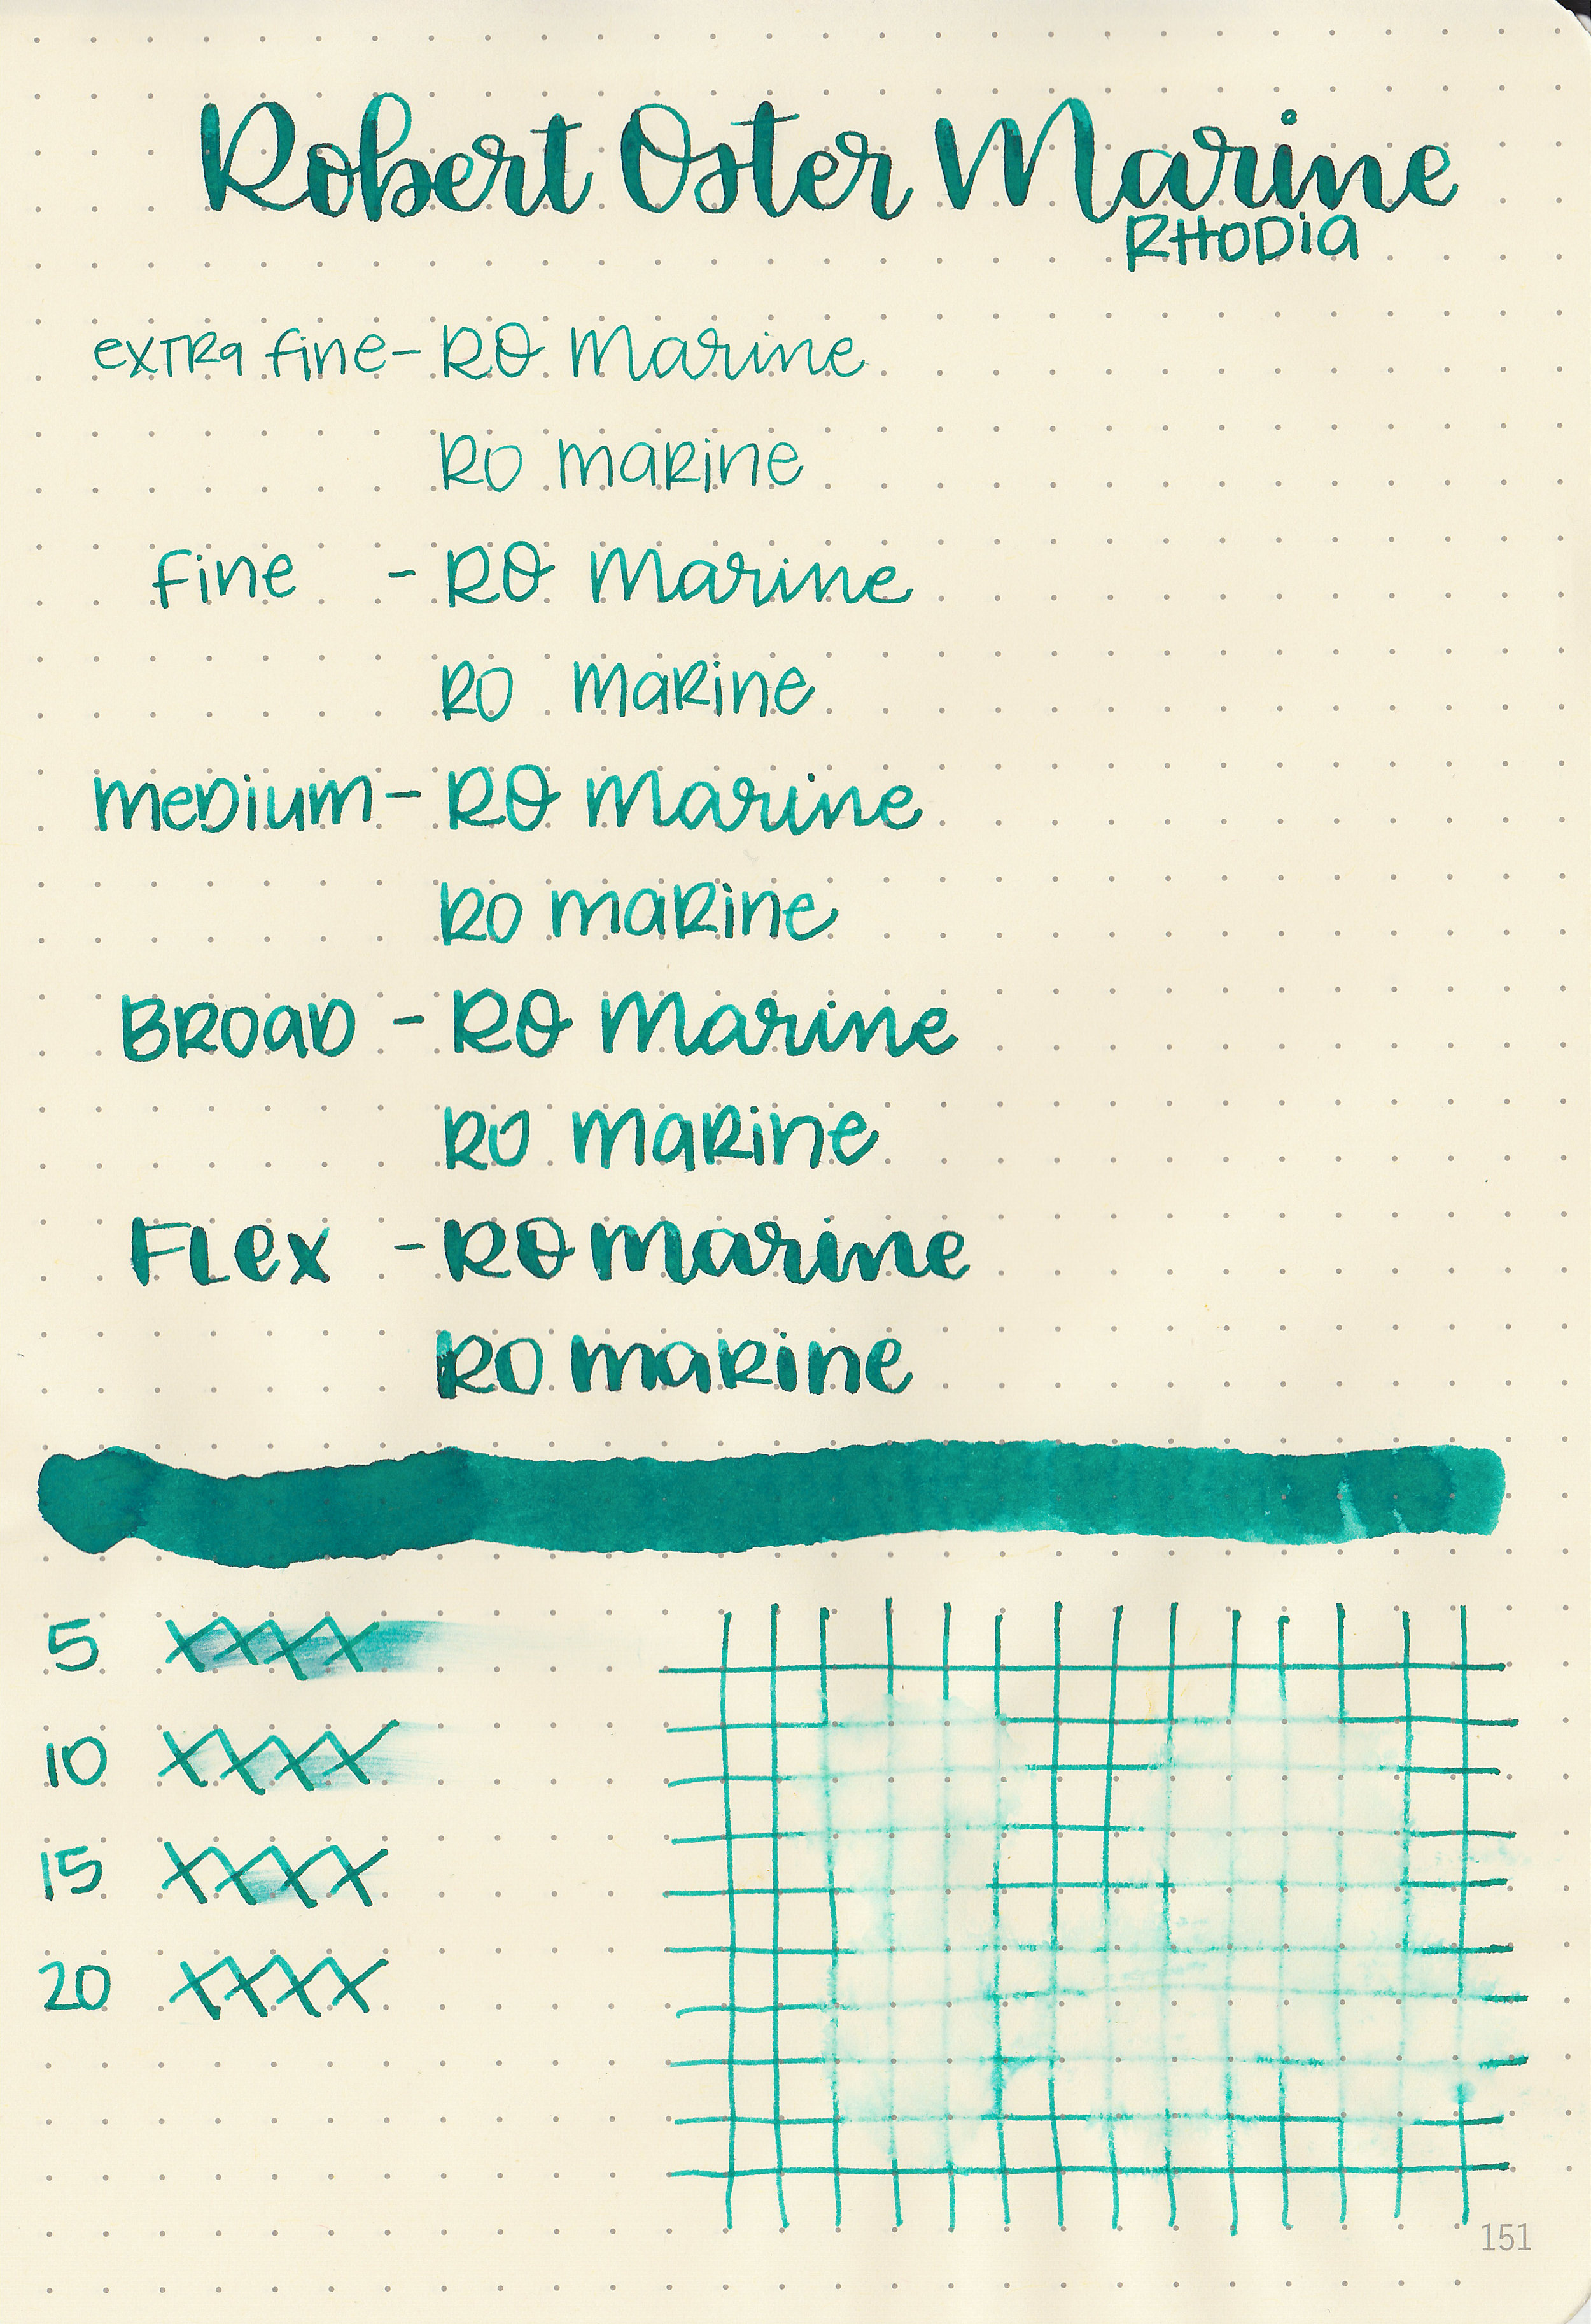 Robert Oster Marine
RHODIA
extra fine - RO Marine
RO marine
fine - RO Marine
RO marine
medium - RO Marine
RO marine
BROAD - RO Marine
RO marine
FLex - RO Marine
RO marine
5 XXXX
10 XXXX
15 XXXX
20 XXXX
151